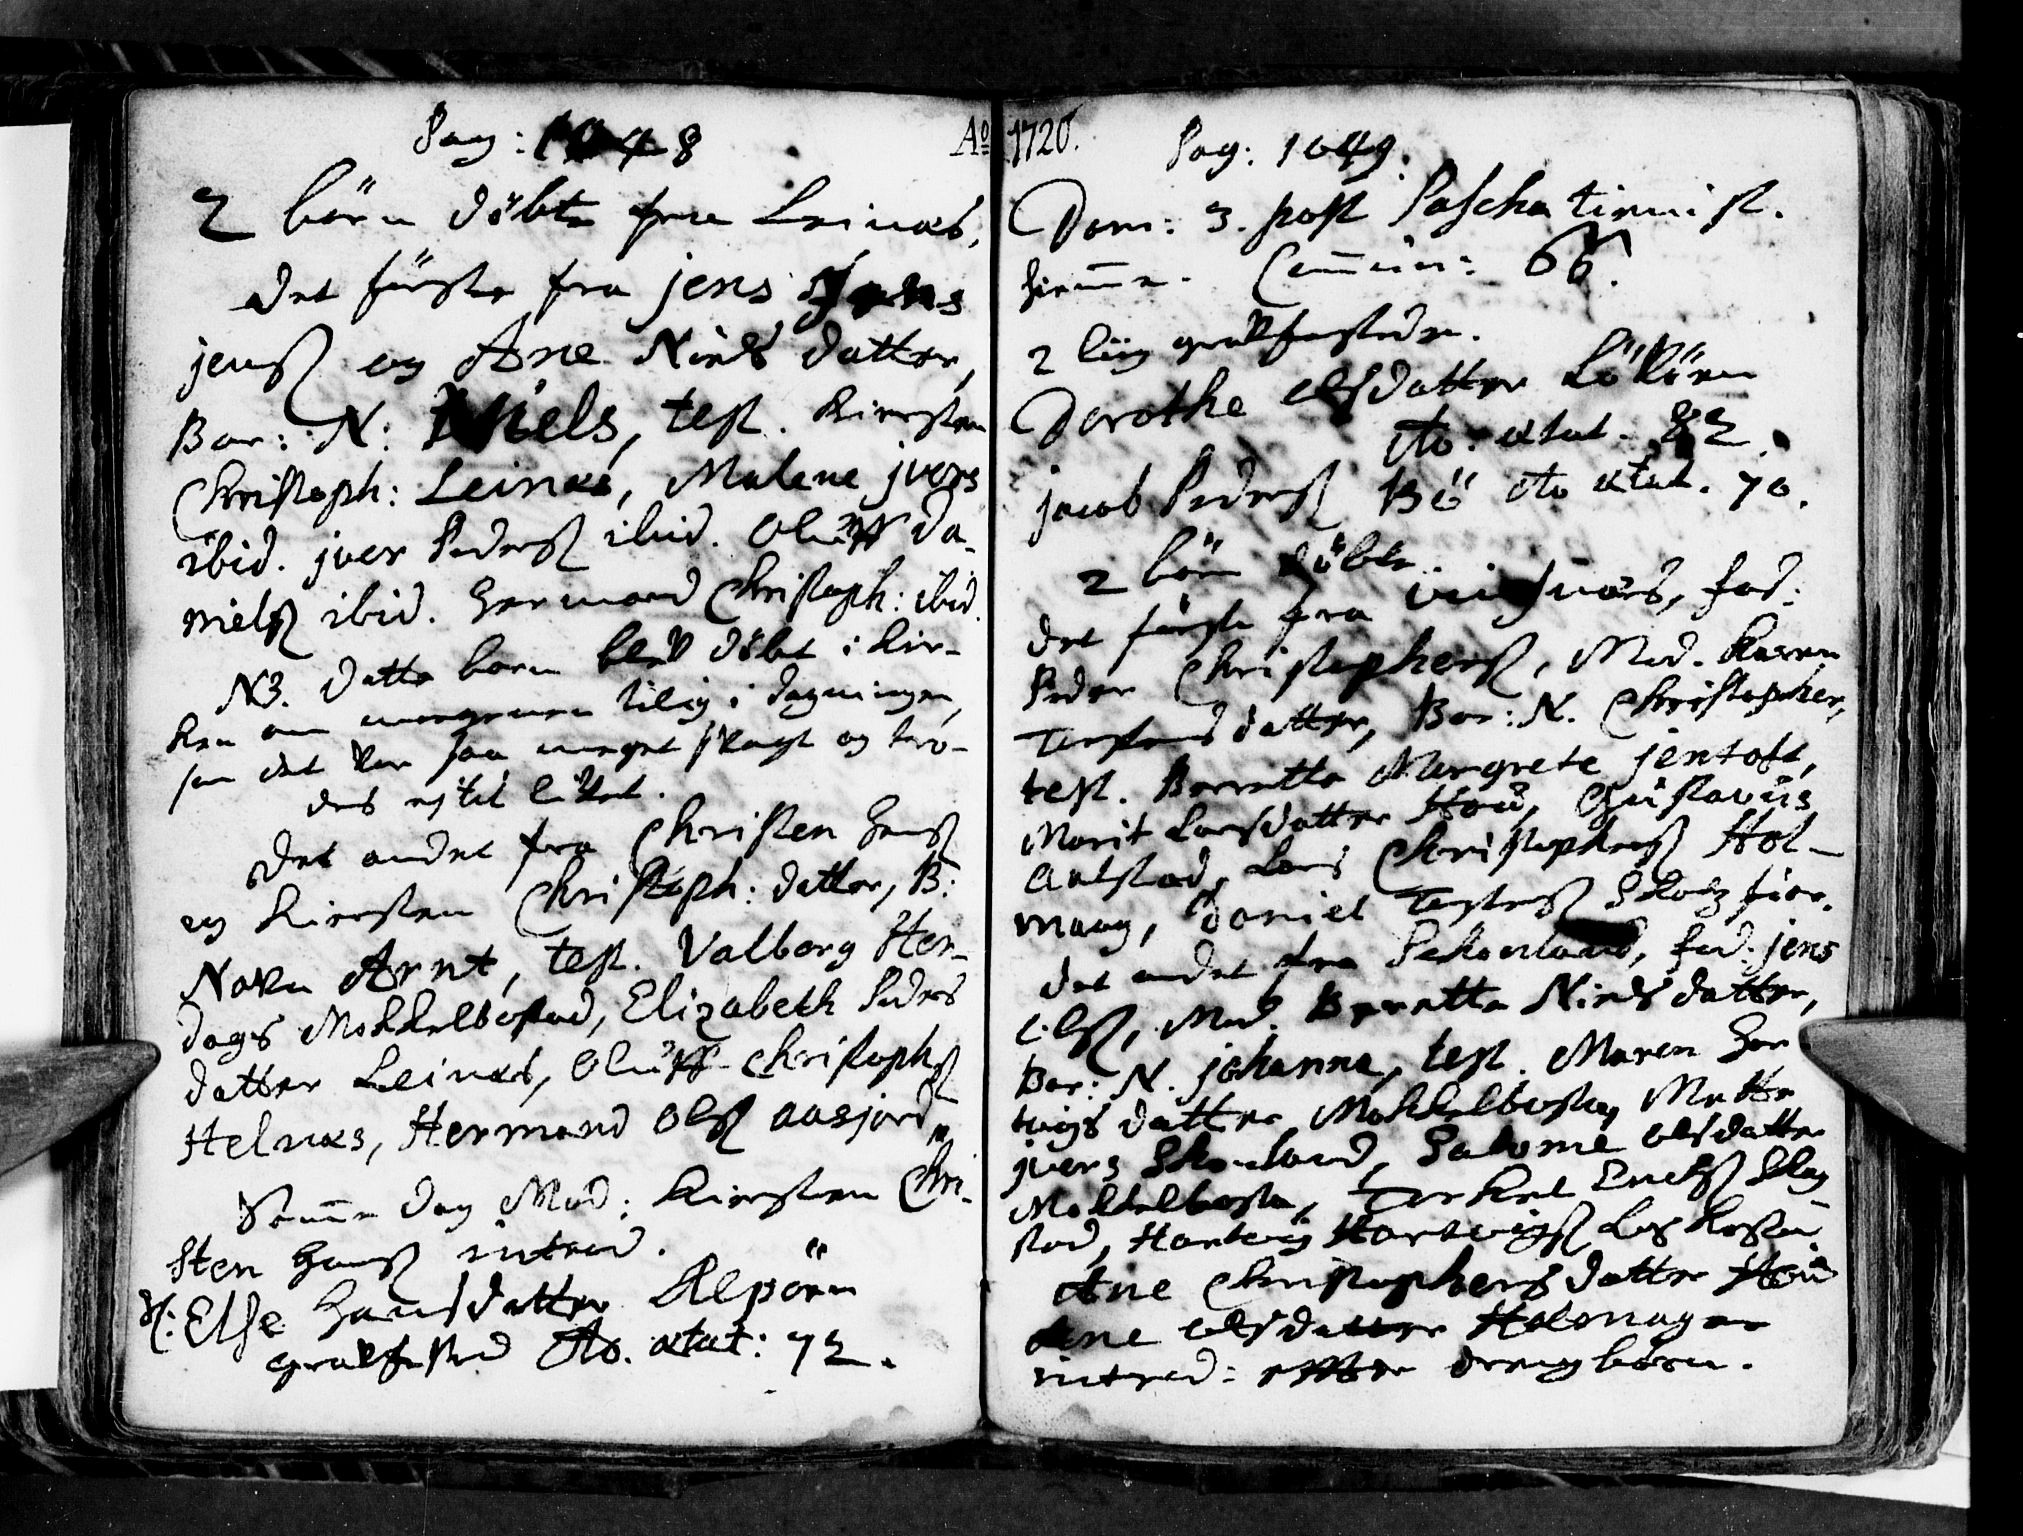 Pag: 1048
2 börn döbte fra Leinæs,
det förste fra jens Jens
jenß og Ane Niels datter,
Bar: N: Niels, test. Kiersten
Christoph: Leinæs, Malene jvers
ibid. jver Pederß ibid. Oluff Da-
nielß ibid. Hermand Christoph: ibid.
NB. dette barn blev döbt i Kir-
ken om morgenen tilig i dagningen,
som det var saa meget svagt og tro-
des ej til livet.
det andet fra Christen Hanß
og Kiersten Christoph: datter, B:
Navn Arnt, test. Valborg Her-
dags Mokkelbostad, Elizabeth Peders
datter Leinæs, Oluff Christophß
Helnæs, Hermand Olß Aasjord
Samme dag Mod: Kiersten Chri-
sten Hanß introd.
It: Else Hansdatter Klepörn
gravfested Ao. ætat: 72.
Ao 1720.
Pag: 1049.
Dom: 3. post Pascha tienist.
hiemme. Commun: 66.
2 liig gravfestede.
Dorothe olsdatter Lökören
Ao. ætat. 82.
jacob Pederß Bö Ao ætat. 70.
2 börn döbte.
det förste fra, fad:
Peder Christopherß, Mod. Karen
Torstens datter, Bar: N. Christopher,
test. Berrette Margrete jentoft,
Marit Larsdatter Hou, Gustavus
Aalstad, Lars Christopherß Hol-
maag, Daniel Skotsfior.
det andet fra Skonland, fad: jens
Olß, Mod. Berette Niels datter,
Bar: N. johanna, test. Maren Har
tvigs datter Mokkelbosta, Mette
jvers Skonland, Salome olsdatter
Mokkelbosta, Torkel Enekß Slog
stad, Hartvig Hartvigß
Ane Christophers datter Hou
Ane olsdatter Holmagen
introd: efter dreng börn.